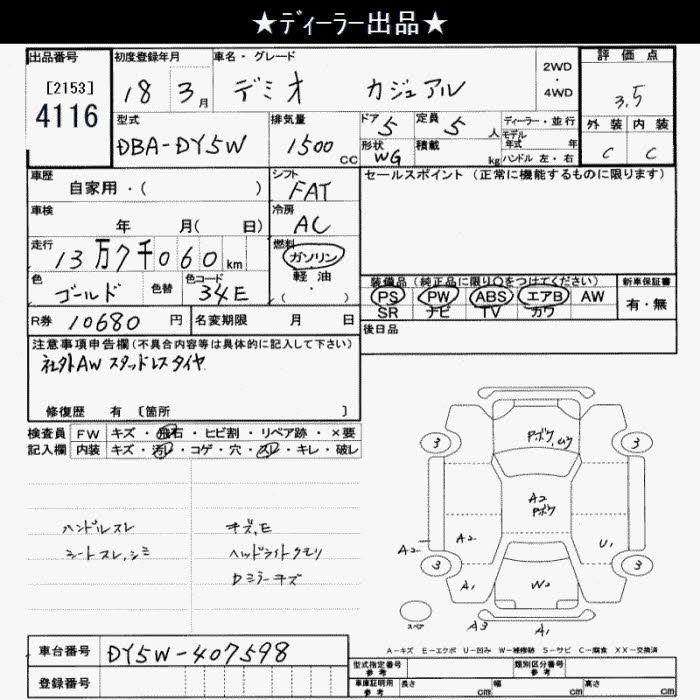 ★ディーラー出品★
出品番号
[2153]
4116
初度登録年月
18 3月
車名・グレード
デミオ カジュアル
2WD
・
4WD
評価点
3.5
外装 内装
C C
型式
DBA-DY5W
排気量
1500 CC
ドア 5
形状 WG
定員 5 人
積載 kg
ディーラー・並行
モデル年式 年
ハンドル 左・右
車歴
自家用・( )
シフト
FAT
セールスポイント(正常に機能するものに限ります)
車検
年 月( 日)
冷房
AC
走行
13万7千060km
燃料
ガソリン
・
軽油
・
( )
色
ゴールド
色替
色コード
34E
装備品(純正品に限り○をつけてください)
PS PW ABS エアB AW
SR ナビ TV カワ
新車保証書
有・無
R券 10680 円
名変期限 月 日
後日品
注意事項申告欄(不具合内容等は具体的に記入して下さい)
社外AW スタッドレスタイヤ
修復歴 有 〔箇所 〕
検査員
記入欄
FW キズ・飛石・ヒビ割・リペア跡・×要
内装 キズ・汚レ・コゲ・穴・スレ・キレ・破レ
ハンドルスレ
シートスレ,シミ
キズ,E
ヘッドライトクモリ
Dミラーキズ
3 3
A2
A2 A2
U1
3 3
A1
W2
スペア
A3 A1
A-キズ E-エクボ U-凹み W-補修跡 S-サビ C-腐食 XX-交換済
車台番号 DY5W-407598
登録番号
型式指定番号
参考
類別区分番号
参考
車庫証明用
参考
長さ cm 幅 cm 高さ cm